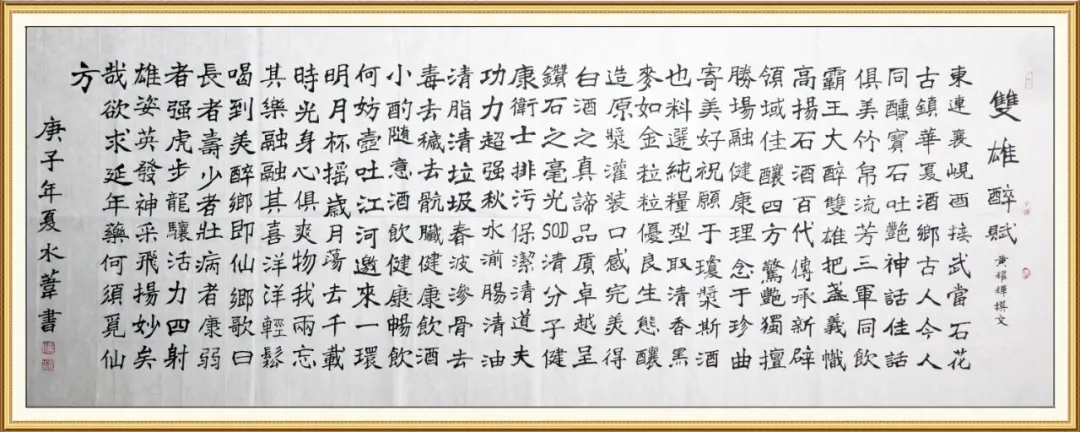 雙雄醉賦
黄耀輝撰文
東連襄峴酉接武當石花
古鎮華夏酒鄉古人今人
同醺寶石吐艷神話佳話
俱美竹帛流芳三軍同飲
霸王大醉雙雄把盞義幟
高揚石酒百代傳承新辟
領域佳釀四方驚艷獨擅
勝場融健康理念于珍曲
寄美好祝願于瓊漿斯酒
也料選純糧型取清香黑
麥如金粒粒優良生態釀
造原漿灌装口感完美得
白酒之真諦品质卓越呈
鑽石之毫光SOD清分子健
康衛士排污保潔清道夫
功力超强秋水湔腸清油
清脂清垃圾春波滲骨去
毒去穢去骯臟健康飲酒
小酌隨意酒飲健康暢飲
何妨壺吐江河邀來一環
明月杯摇歲月蕩去千載
時光身心俱爽物我兩忘
其樂融融其喜洋洋輕鬆
喝到美醉鄉即仙鄉歌曰
長者壽少者壯病者康弱
者强虎步龍驤活力四射
雄姿英發神采飛揚妙矣
哉欲求延年藥何須覓仙
方
庚子年夏水葦書